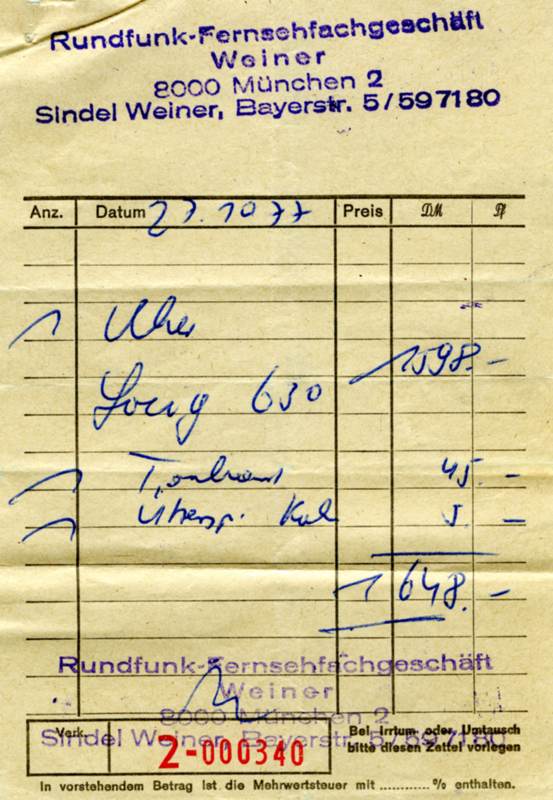 Rundfunk-Fernsehfachgeschäft
Weiner
8000 München 2
Sindel Weiner, Bayerstr. 5/597180
Anz. Datum 27.10 77 Preis DM Pf
1 Uher
1598.-
630
1 Tonband 45.-
1 Übersp. Kab 5.-
1648.-
Rundfunk-Fernsehfachgeschäft
Weiner
8000 München 2
Sindel Weiner, Bayerstr. 5/597180
Verk.
2-000340
Bei Irrtum oder Umtausch
bitte diesen Zettel vorlegen
In vorstehendem Betrag ist die Mehrwertsteuer mit ............ % enthalten.